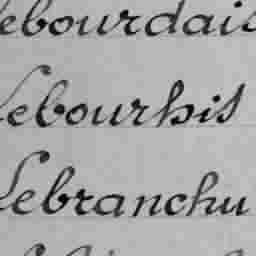 Lebourdais
Lebourhis
Lebranchu